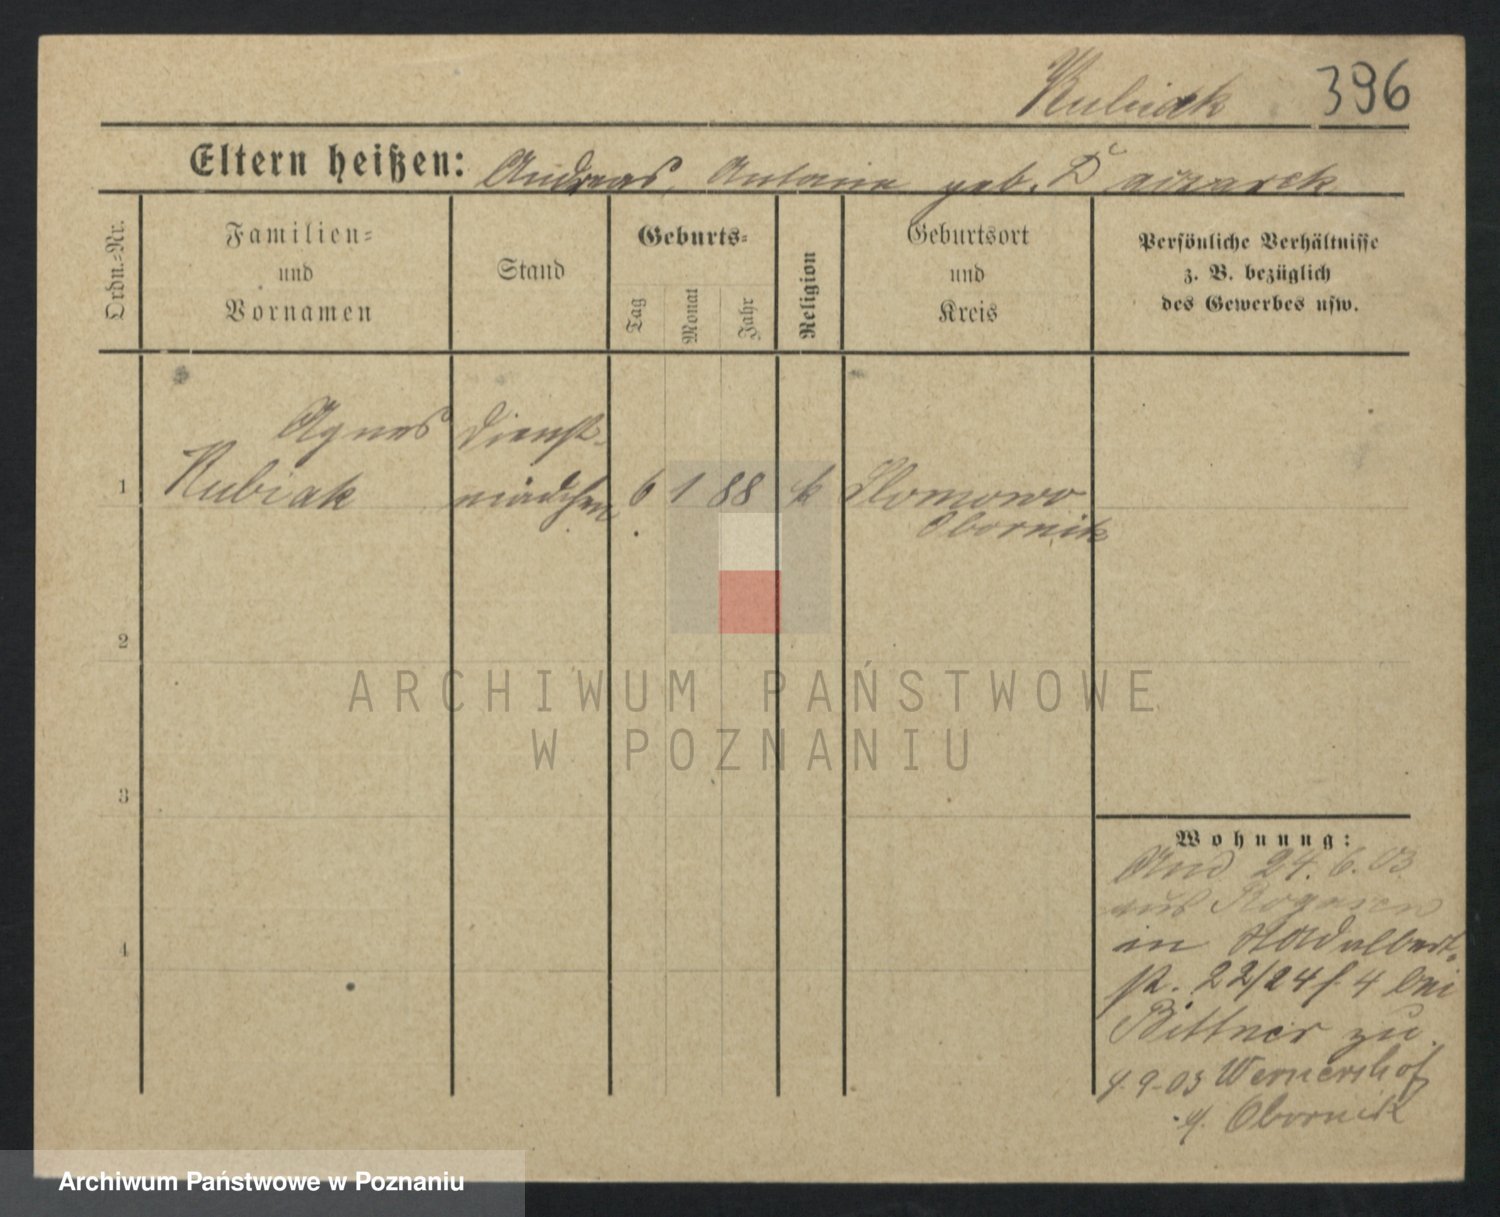 Kubiak 396
Eltern heißen: Andreas, Antonie geb.
Ordn.-Nr.
Familien-
und
Vornamen
Stand
Geburts-
Tag
Monat
Jahr
Religion
Geburtsort
und
Kreis
Persönliche Verhältnisse
z. B. bezüglich
des Gewerbes usw.
Agnes Dienst-
1 Kubiak mädchen 6 1 88 k Slomowo
Obornik
2
3
4
Wohnung:
24. 6. 03
aus Rogasen
in St Adalbert-
st. 22/24 f. 4 bei
Bittner zu.
9. 9. 03 Wernershof
Obornik
ARCHIWUM PAŃSTWOWE
W POZNANIU
Archiwum Państwowe w Poznaniu